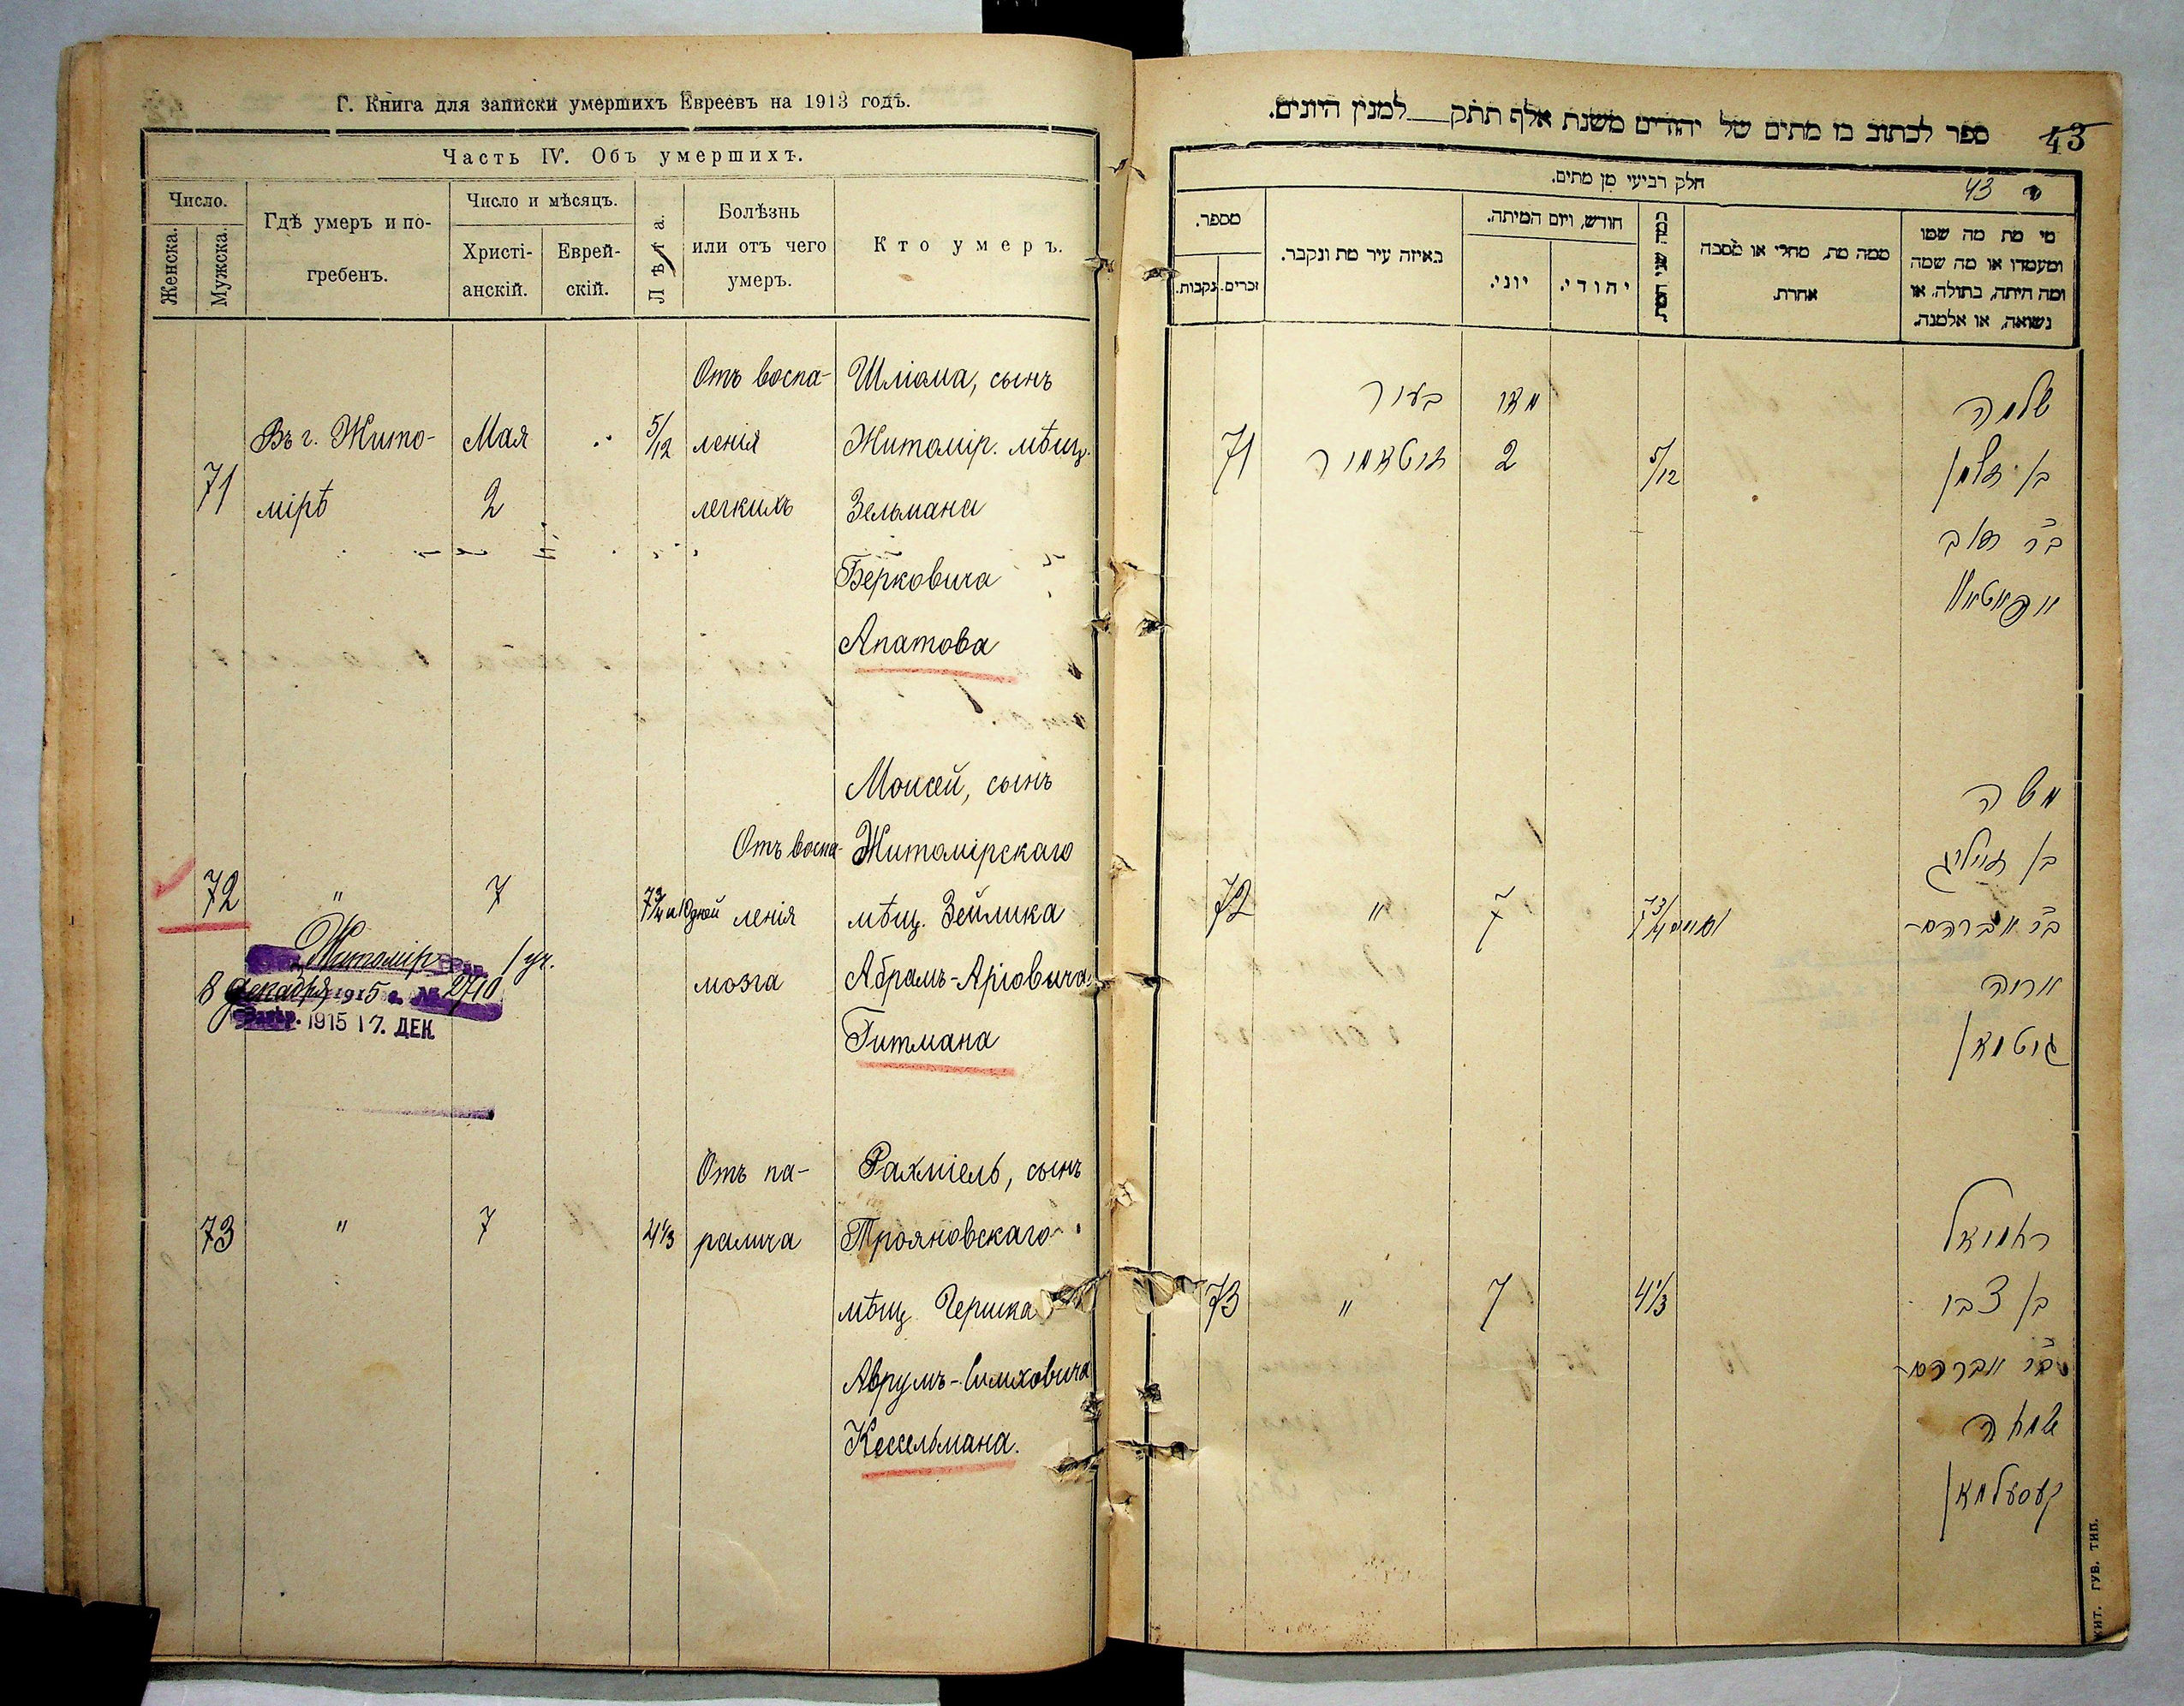 Г. Книга для записки умершихъ Евреевъ на 1913 годъ.
Часть IV. Объ умершихъ.
Число.
Женска.
Мужска.
Гдѣ умеръ и по-
гребенъ.
Число и мѣсяцъ.
Христі-
анскій.
Еврей-
скій.
Лѣта.
Болѣзнь
или отъ чего
умеръ.
Кто умеръ.
71
Въ г. Жито-
мірѣ
Мая
2
5/12
Отъ воспа-
ленія
легкихъ
Шліома, сынъ
Житомір. мѣщ.
Зельмана
Берковича
Апатова
72
"
7
Отъ воспа-
ленія
мозга
Моисей, сынъ
Житомірскаго
мѣщ. Зейлика
Абрамъ-Аріовича
Гитмана
Житомір
1 уч.
8 декабря 1915 г. № 2710
1915 17. ДЕК
73
"
7
4 1/3
Отъ па-
ралича
Рахміель, сынъ
Трояновскаго
мѣщ Гершка
Аврумъ-Симховича
Кессельмана.
ספר לכתוב בו מתים של יהודים משנת אלף תתק למנין היונים.
43
חלק רביעי מן מתים.
43
מספר.
זכרים.
נקבות.
באיזה עיר מת ונקבר.
חודש, ויום המיתה.
יוני.
יהודי.
ממה מת, מחלי או מסבה
אחרת.
מי מת מה שמו
ומעמדו או מה שמה
ומה היתה, בתולה, או
נשואה, או אלמנה.
71
בעיר
זיטאמיר
מאי
2
5/12
שלמה
בן זלמן
בר דוב
אפאטאוו
72
"
7
משה
בן זייליג
בר אברהם-
אריה
גיטמאן
73
"
7
4 1/3
ראחמיאל
בן צבי
בר אברהם-
שמחה
קעסעלמאן
ЖИТ. ГУБ. ТИП.